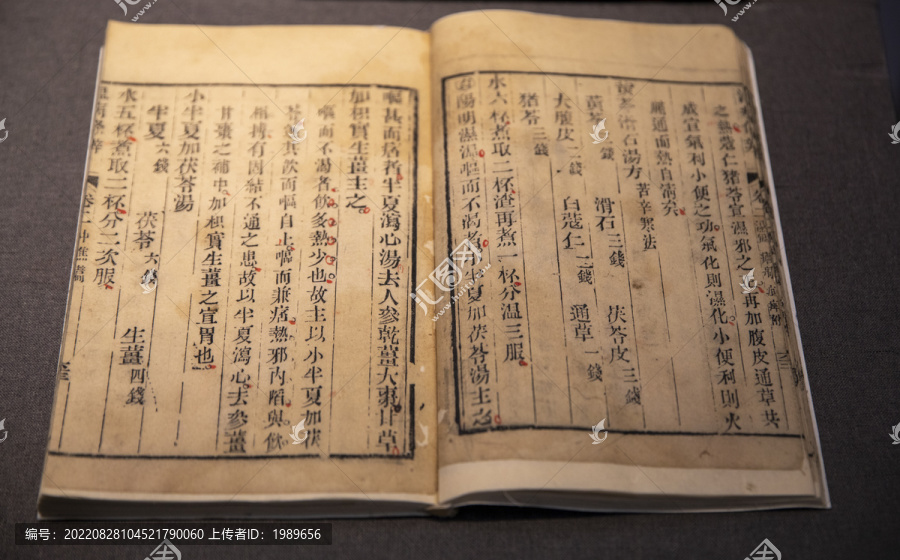 之熱蔻仁猪苓宣濕邪之再加腹皮通草共
成宣氣利小便之功氣化則濕化小便利則火
腑通而熱自清矣
黃芩滑石湯方 苦辛寒法
黃芩 三錢 滑石 三錢 茯苓皮 三錢
大腹皮 二錢 白蔻仁 一錢 通草 一錢
猪苓 三錢
水六杯煮取二杯渣再煮一杯分温三服
陽明濕温嘔而不渴者小半夏加茯苓湯主之
嘔甚而痞者半夏瀉心湯去人參乾薑大棗甘草
加枳實生薑主之
嘔而不渴者飲多熱少也故主以小半夏加茯
苓其飲而嘔自止嘔而兼痞熱邪內陷與飲
相搏有固結不通之患故以半夏瀉心去參薑
甘棗之補中加枳實生薑之宣胃也
小半夏加茯苓湯
半夏 六錢 茯苓 六錢 生薑 四錢
水五杯煮取二杯分二次服
卷二 中焦
编号：20220828104521790060 上传者ID：1989656